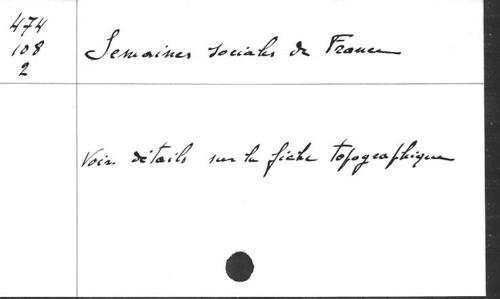 474
108
2
Semaines sociales de France
Voir détails sur la fiche topographique